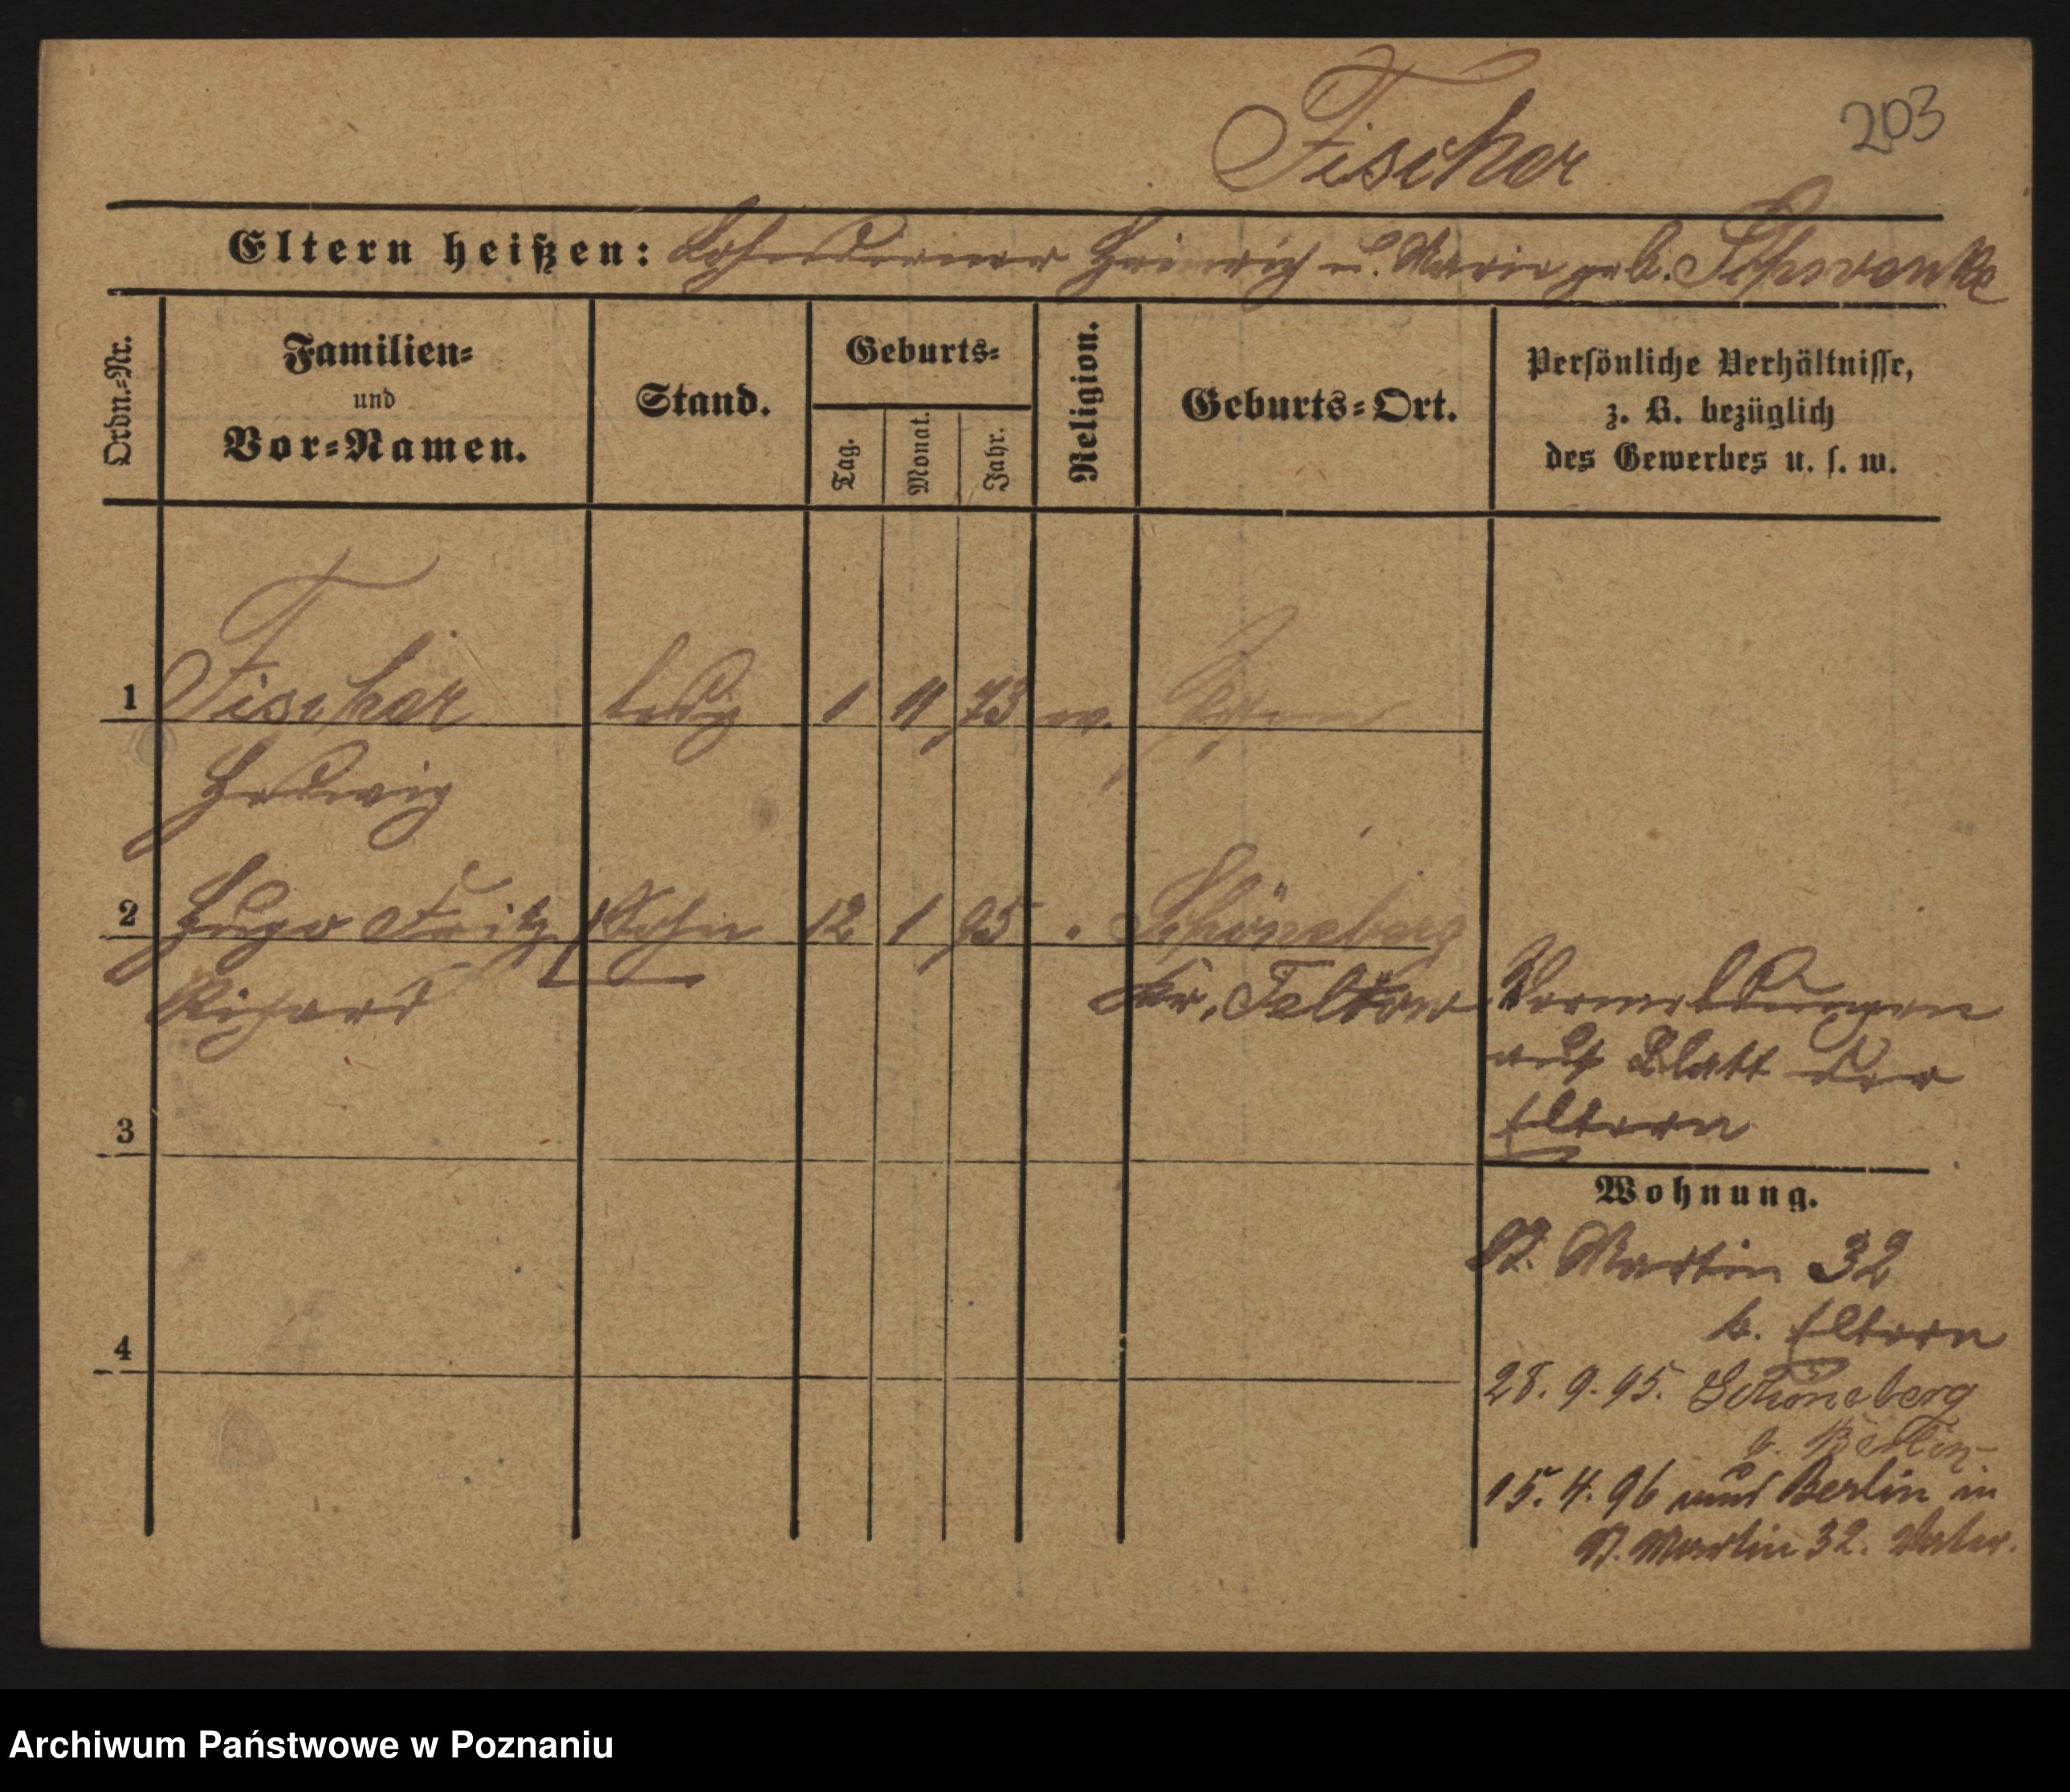 Fischer
203
Eltern heißen: Lohndiener Heinrich u. Marie geb. Schwanke
Ordn.=Nr.
Familien=
und
Vor=Namen.
Stand.
Geburts=
Tag.
Monat.
Jahr.
Religion.
Geburts=Ort.
Persönliche Verhältnisse,
z. B. bezüglich
des Gewerbes u. s. w.
1 Fischer ledig 1 11 73 ev. Posen
Hedwig
2 Hugo Fritz Sohn 12 1 95 " Schöneberg
Richard Kr. Teltow
Vermeldungen
auf Blatt der
Eltern
3
Wohnung.
St. Martin 32
b. Eltern
4
28. 9. 95. Schöneberg
b. Berlin
15. 4. 96 aus Berlin in
St. Martin 32. Vater.
Archiwum Państwowe w Poznaniu